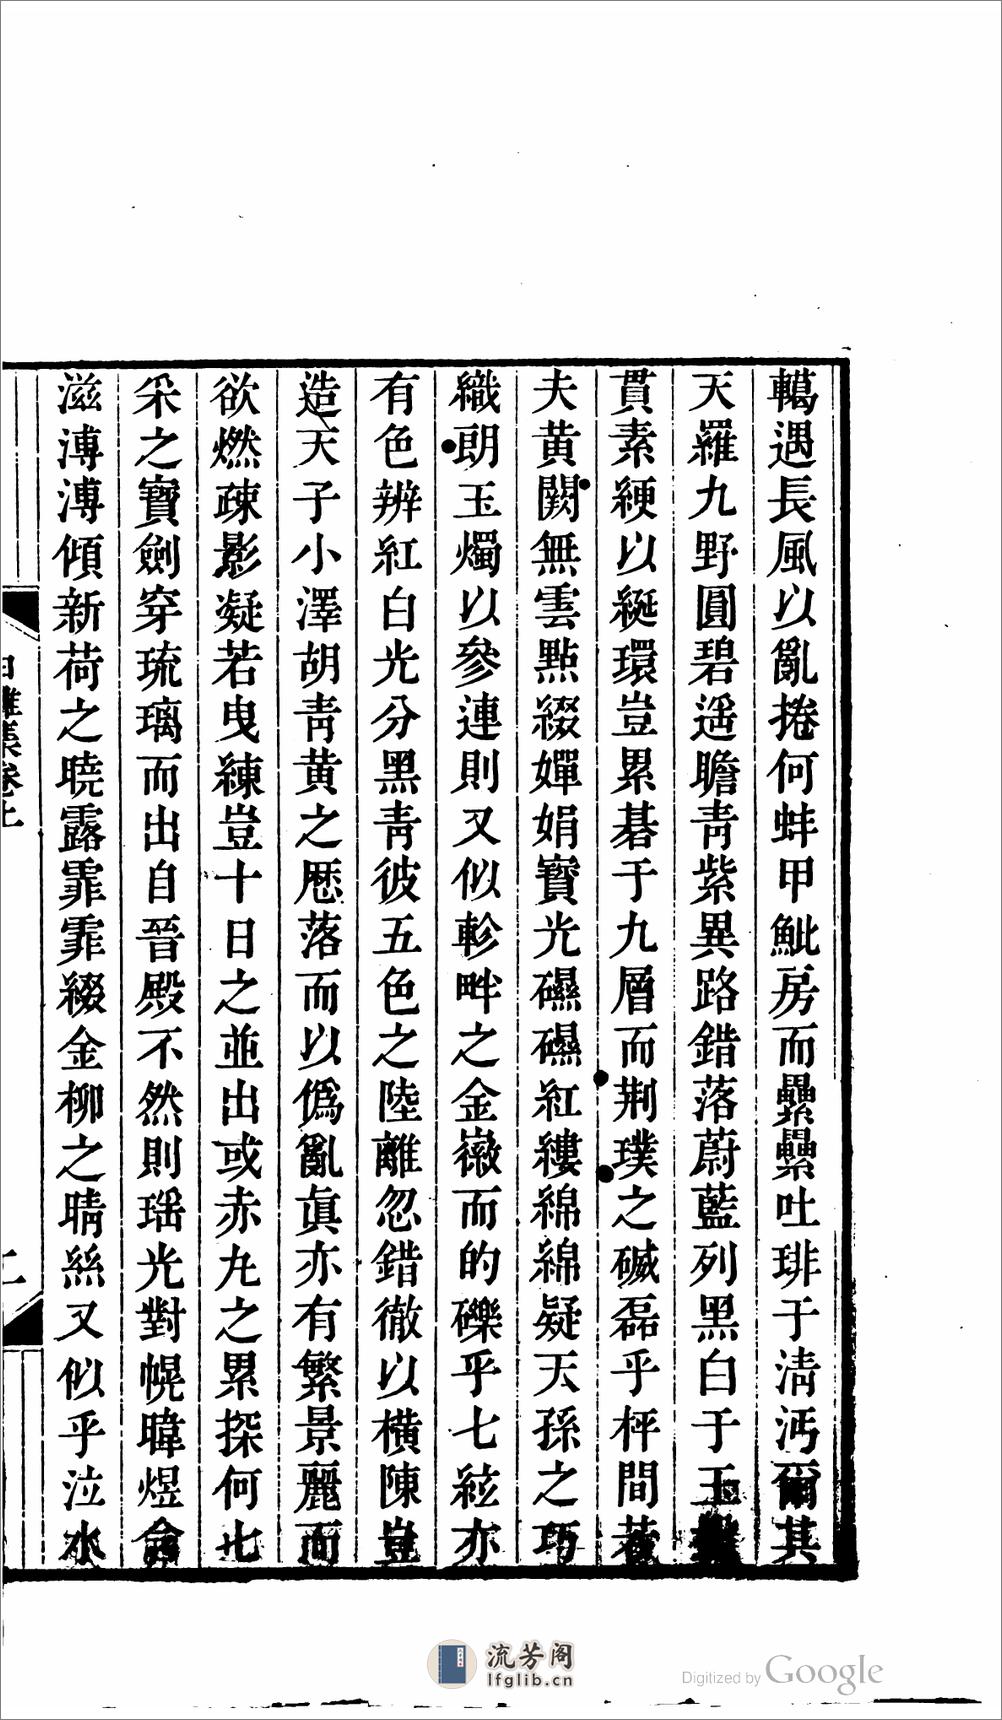 轕遇長風以亂捲何蚌甲魮房而纍纍吐琲于淸沔爾其
天羅九野圓碧遥瞻靑紫異路錯落蔚藍列黑白于玉
貫素綆以綖環豈累碁于九層而荆璞之磩磊乎枰間若
夫黄闕無雲點綴嬋娟寶光礧礧紅縷綿綿疑天孫之巧
織朗玉燭以參連則又似軫畔之金徽而的礫乎七絃亦
有色辨紅白光分黑靑彼五色之陸離忽錯徹以橫陳豈
造天子小澤胡靑黄之歷落而以僞亂眞亦有繁景麗而
欲燃疎影凝若曳練豈十日之並出或赤九之累探何七
采之寶劍穿琉璃而出自晉殿不然則瑶光對幌暐煜含
滋漙漙傾新荷之曉露霏霏綴金柳之晴絲又似乎泣水
集卷上